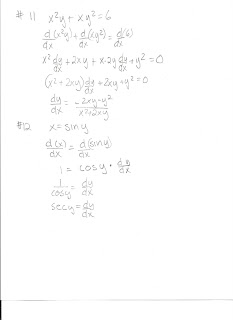 #11 x²y + xy² = 6
d/dx (x²y) + d/dx (xy²) = d/dx (6)
x² dy/dx + 2xy + x·2y dy/dx + y² = 0
(x² + 2xy) dy/dx + 2xy + y² = 0
dy/dx = -2xy - y² / x² + 2xy
#12 x = sin y
d(x)/dx = d(sin y)/dx
1 = cos y · dy/dx
1/cos y = dy/dx
sec y = dy/dx